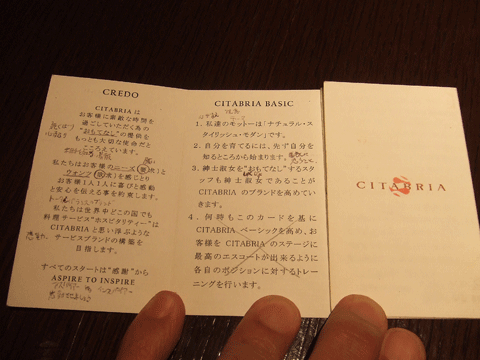 CREDO
CITABRIA は
お客様に素敵な時間を
過ごしていただく為の
"おもてなし"の提供を
もっとも大切な使命だと
こころえています。
私たちはお客様のニーズ(要求)と
ウォンツ(欲求)を感じとり
お客様1人1人に喜びと感動
と安心を伝える事を約束します。
私たちは世界中どこの国でも
料理 サービス"ホスピタリティー"は
CITABRIAと思い浮ぶような
サービスブランドの構築を
目指します。
すべてのスタートは"感謝"から
ASPIRE TO INSPIRE
CITABRIA BASIC
1、私達のモットーは「ナチュラル・ス
タイリッシュ・モダン」です。
2、自分を育てるには、先ず自分を
知るところから始まります。
3、紳士淑女を"おもてなし"するスタ
ッフも紳士淑女であることが
CITABRIA のブランドを高めてい
きます。
4、何時もこのカードを基に
CITABRIA ベーシックを高め、お
客様を CITABRIA のステージに
最高のエスコートが出来るように
各自のポジションに対するトレー
ニングを行います。
CITABRIA